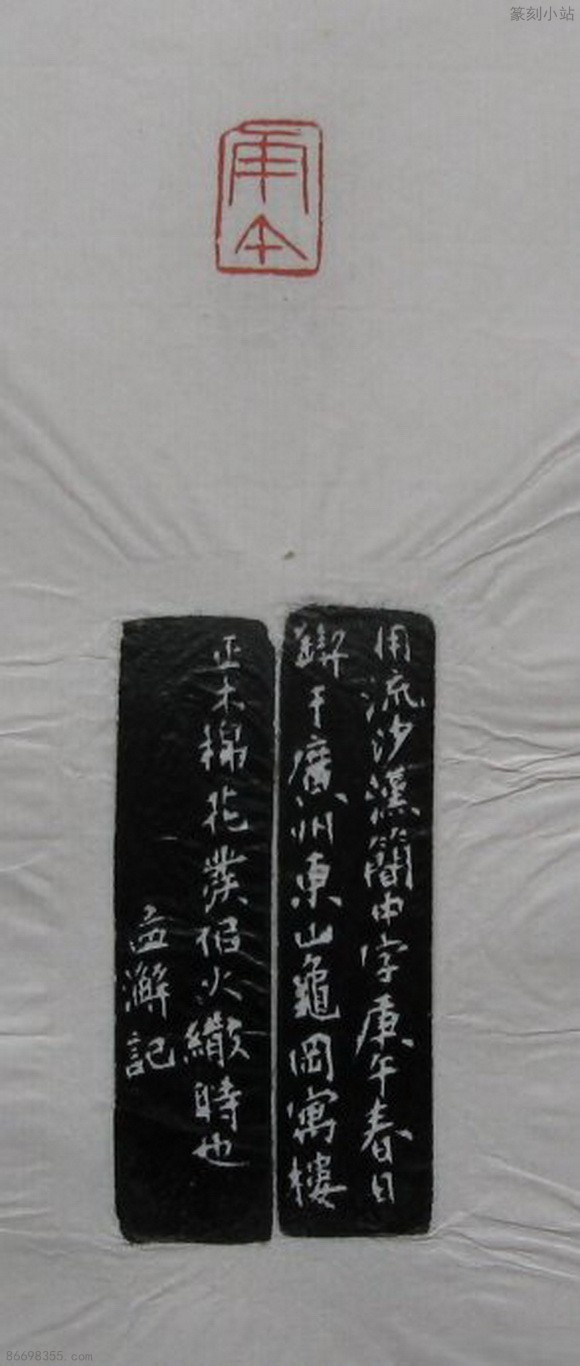 篆刻小站
用流沙漢簡中字庚午春日
鍥于廣州東山龜岡寓樓
正木棉花發佀火繖時也
孟澥記
86698355.com